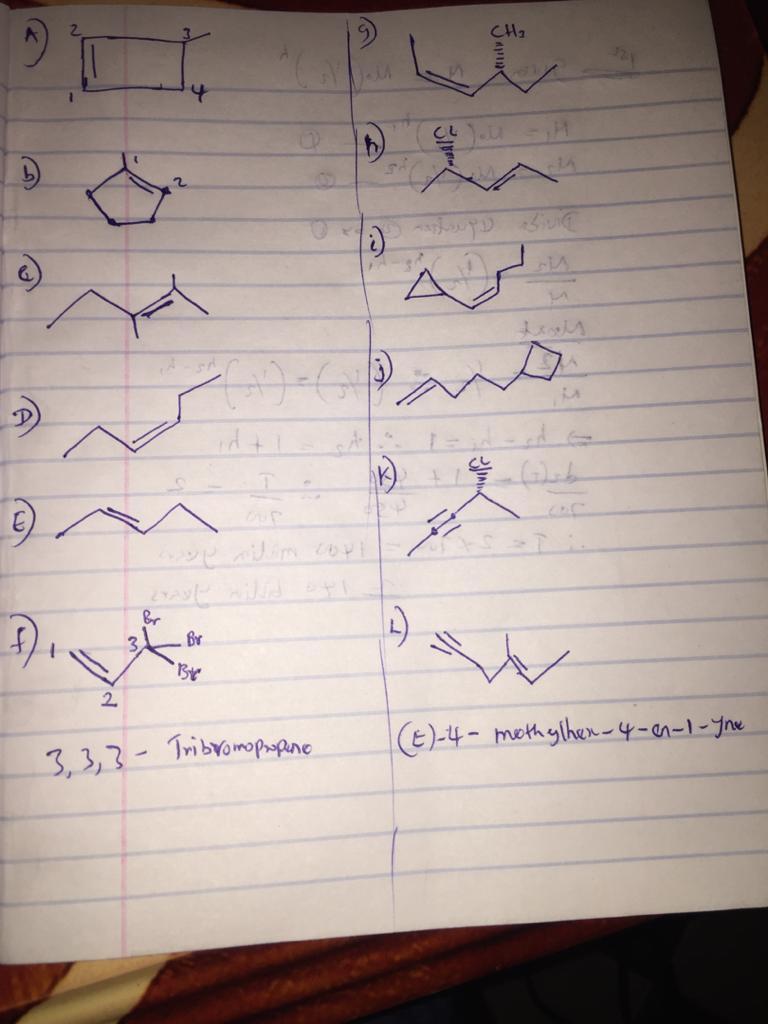 A)
2
3
1
4
b)
1
2
C)
D)
E)
f)
1
Br
3
Br
Br
2
3,3,3 - Tribromopropene
g)
CH3
h)
Cl
i)
j)
K)
Cl
L)
(E)-4- methylhex-4-en-1-yne